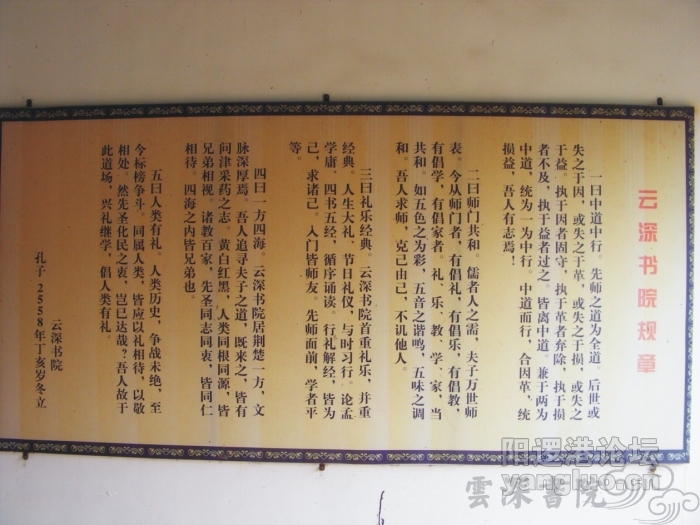 云深书院规章
一曰中道中行。先师之道为全道。后世或
失之于因，或失之于革，或失之于损，或失之
于益。执于因者固守，执于革者弃除，执于损
者不及，执于益者过之。皆离中道。兼于两为
中道，统为一为中行。中道而行，合因革，统
损益，吾人有志焉！
二曰师门共和。儒者人之需，夫子万世师
表。今从师门者，有倡礼，有倡乐，有倡教，
有倡学，有倡家者。礼、乐、教、学、家，当
共和。如五色之为彩，五音之谐鸣，五味之调
和。吾人求师，克己由己，不讥他人。
三曰礼乐经典。云深书院首重礼乐，并重
经典。人生大礼，节日礼仪，与时习行。论孟
学庸，四书五经，循序诵读。行礼解经，皆为
己，求诸己。入门皆师友。先师面前，学者平
等。
四曰一方四海。云深书院居荆楚一方，文
脉深厚焉。吾人追寻夫子之道，既来之，皆有
问津采药之志。黄白红黑，人类同根同源，皆
兄弟相视。诸教百家，先圣同志同衷，皆同仁
相待。四海之内皆兄弟也。
五曰人类有礼。人类历史，争战未绝，至
今标榜争斗。同属人类，皆应以礼相待，以敬
相处。然先圣化民之衷，岂已达哉？吾人故于
此道场，兴礼继学，倡人类有礼。
云深书院
孔子2558年丁亥岁冬立
阳逻港论坛
yangluo.cn
雲深書院